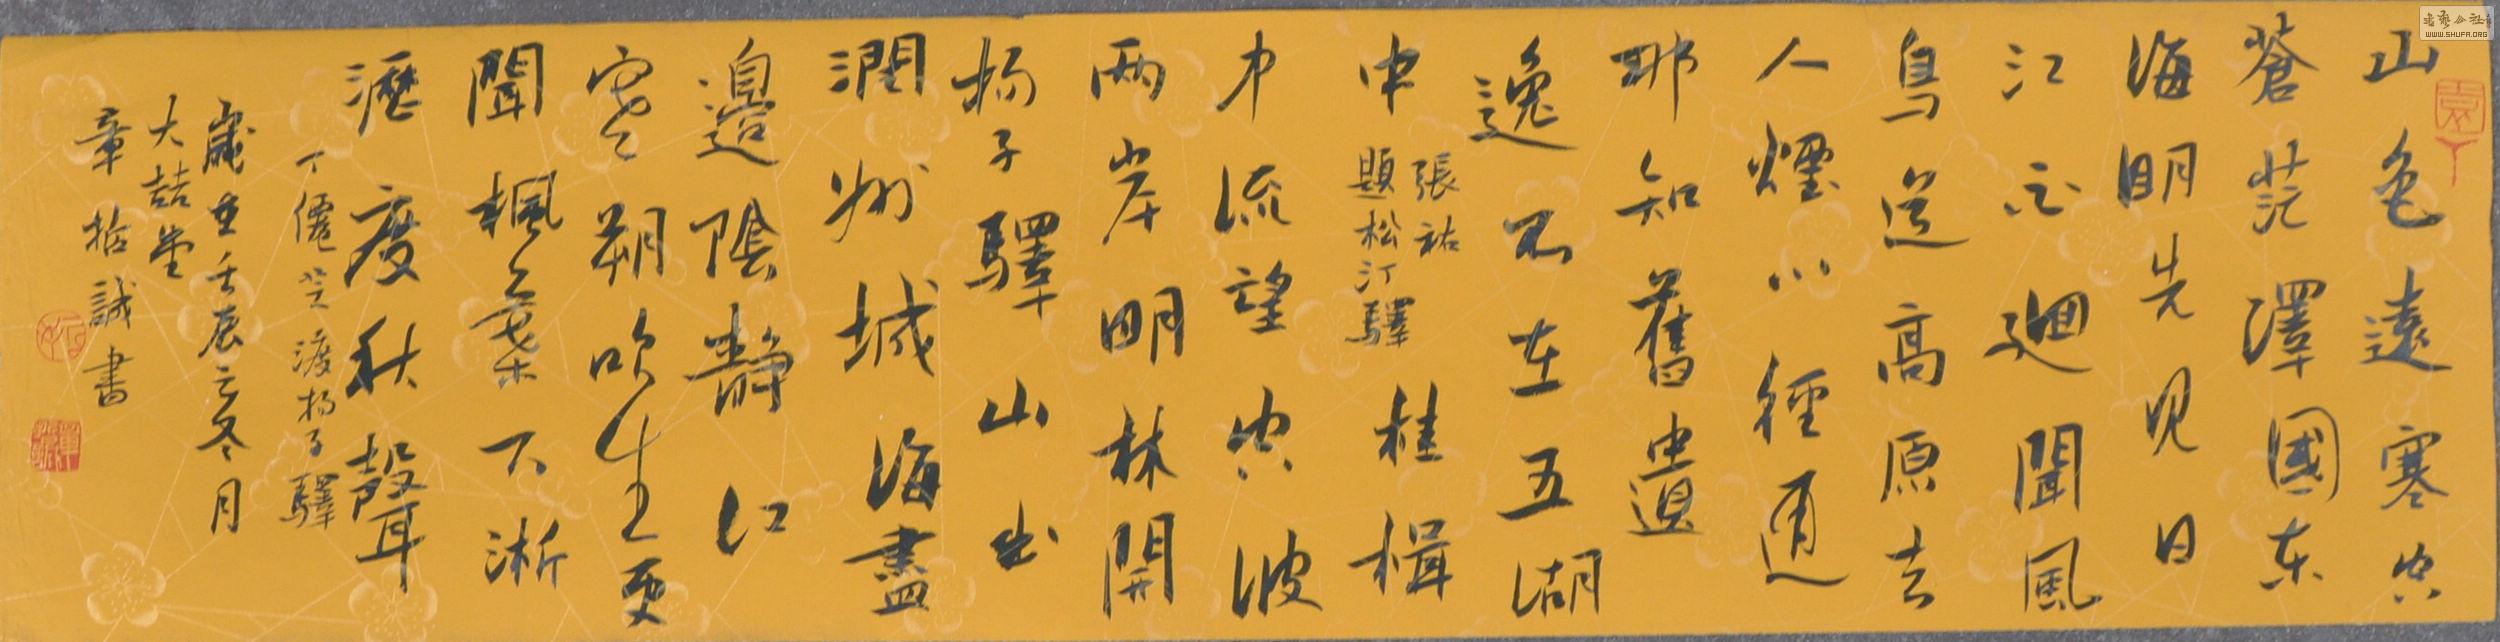 山色遠寒空
蒼茫澤國東
海明先見日
江白廻聞風
鳥道高原去
人煙小徑通
那知舊遺
逸不在五湖
中
張祐
題松汀驛
桂楫
中流望空波
两岸明林開
揚子驛山出
潤州城海盡
邊陰靜江
寒朔吹生更
聞楓葉下淅
瀝度秋聲
丁僊芝渡揚子驛
歲在壬辰之冬月
大喆堂
章拓誠書
書藝公社
WWW.SHUFA.ORG